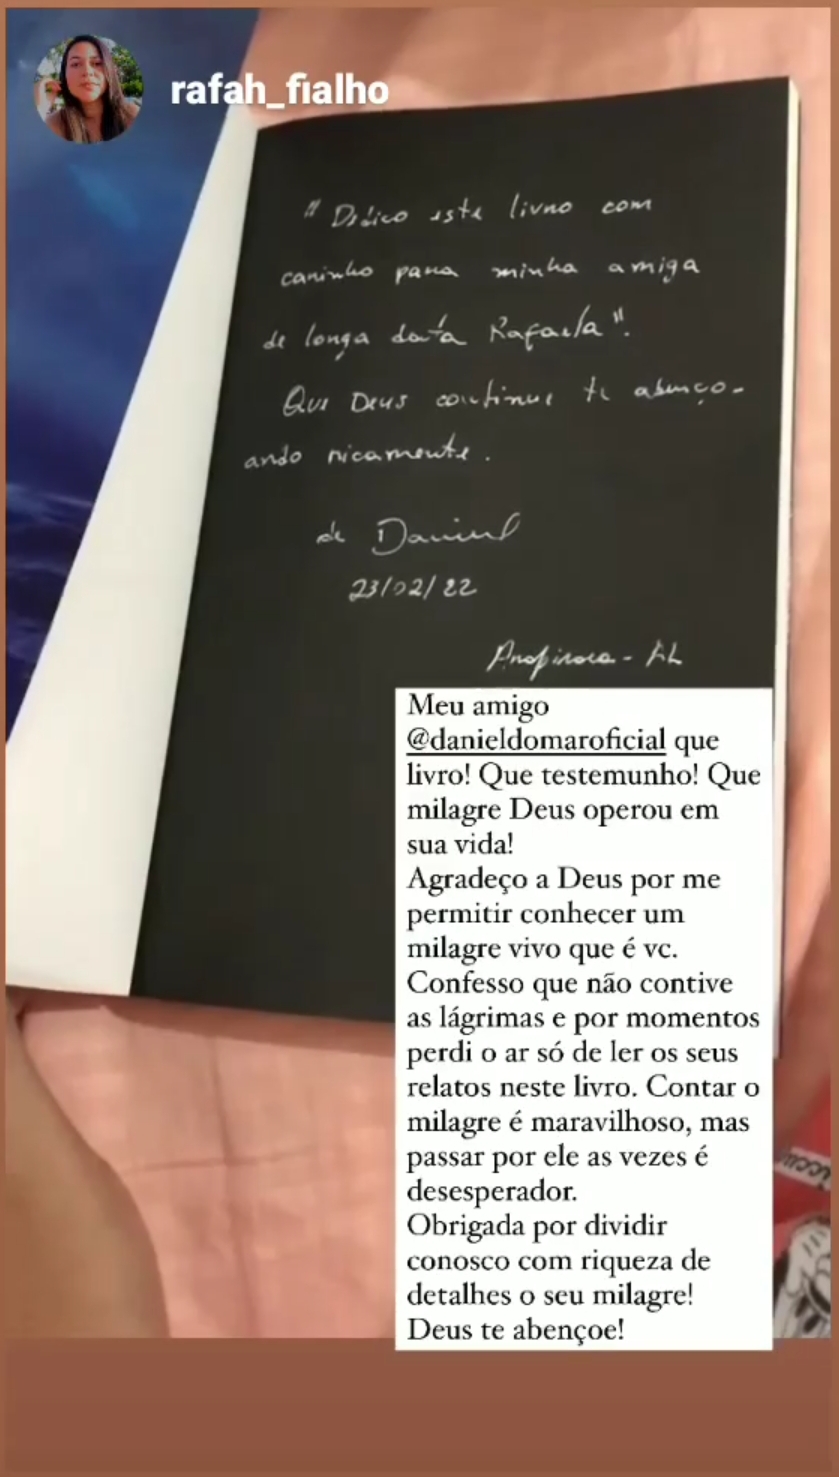 rafah_fialho
"Dedico este livro com
carinho para minha amiga
de longa data Rafaela".
Que Deus continue te abenço-
ando ricamente.
de Daniel
23/02/22
Arapiraca - AL
Meu amigo
@danieldomaroficial que
livro! Que testemunho! Que
milagre Deus operou em
sua vida!
Agradeço a Deus por me
permitir conhecer um
milagre vivo que é vc.
Confesso que não contive
as lágrimas e por momentos
perdi o ar só de ler os seus
relatos neste livro. Contar o
milagre é maravilhoso, mas
passar por ele as vezes é
desesperador.
Obrigada por dividir
conosco com riqueza de
detalhes o seu milagre!
Deus te abençoe!